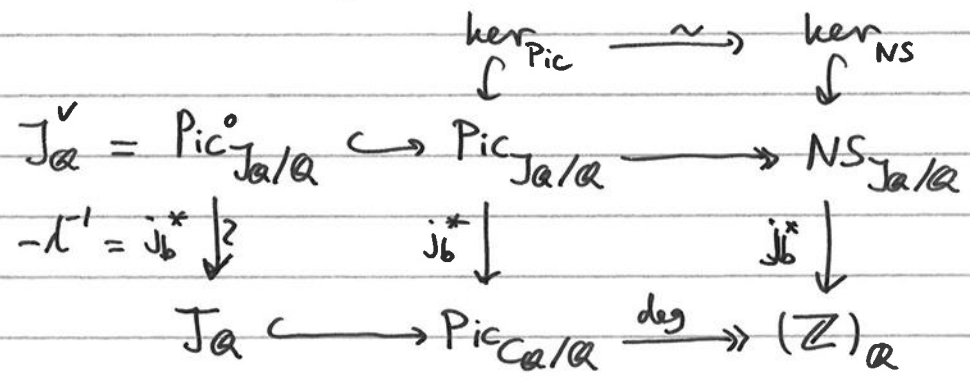 ker_Pic ⥲ ker_NS
J_ℚ^∨ = Pic°_{J_ℚ/ℚ} ↪ Pic_{J_ℚ/ℚ} ↠ NS_{J_ℚ/ℚ}
-λ^{-1} = j_b^* ↓≀ j_b^* ↓ j_b^* ↓
J_ℚ ↪ Pic_{C_ℚ/ℚ} deg ↠ (ℤ)_ℚ